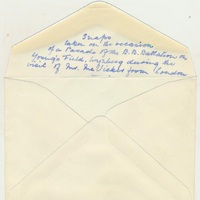 Snaps
taken on the occasion
of a Parade of the B.B. Battalion in
Young's Field, during the
visit of Mr. McVicker from London